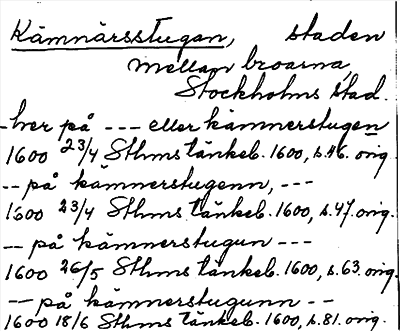 Kämnärsstugan, staden
mellan broarna,
Stockholms stad.
-her på --- eller kämmerstugen
1600 23/4 Sthms tänkeb. 1600, s.46. orig.
-- på kämnerstugenn, ---
1600 23/4 Sthms tänkeb. 1600, s.47. orig.
-- på kämnerstugun ---
1600 26/5 Sthms tänkeb. 1600, s.63. orig.
-- på kämnerstugunn --
1600 18/6 Sthms tänkeb. 1600, s.81. orig.